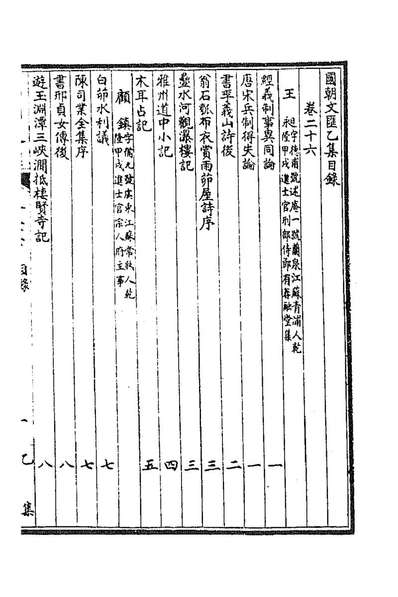 國朝文匯乙集目錄
卷二十六
王昶 字德甫號述庵一號蘭泉江蘇青浦人乾隆甲戌進士官刑部侍郎有春融堂集
經義制事異同論 一
唐宋兵制得失論 一
書平義山詩後 二
翁石瓠布衣賞雨茆屋詩序 三
盤水河觀瀑樓記 三
雅州道中小記 四
木耳占記 五
顧鎮 字備九號虞東江蘇常熟人乾隆甲戌進士官宗人府主事
白茆水利議 七
陳司業全集序 七
書邢貞女傳後 八
遊玉淵潭三峽澗抵棲賢寺記 八
目錄
一
乙集